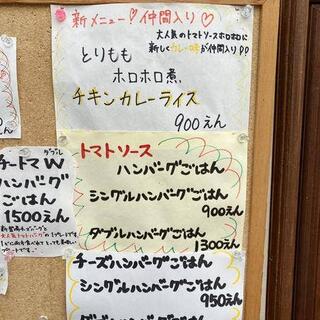 新メニュー！仲間入り♡
大人気のトマトソースホロホロに
新しくカレー味が仲間入り！！
とりもも
ホロホロ煮、
チキンカレーライス
900えん
トマトソース
ハンバーグごはん
シングルハンバーグごはん
900えん
ダブルハンバーグごはん
1300えん
チーズハンバーグごはん
シングルハンバーグごはん
950えん
ダブル
チートマW
ハンバーグ
ごはん
1500えん
大人気トマトハンバーグ